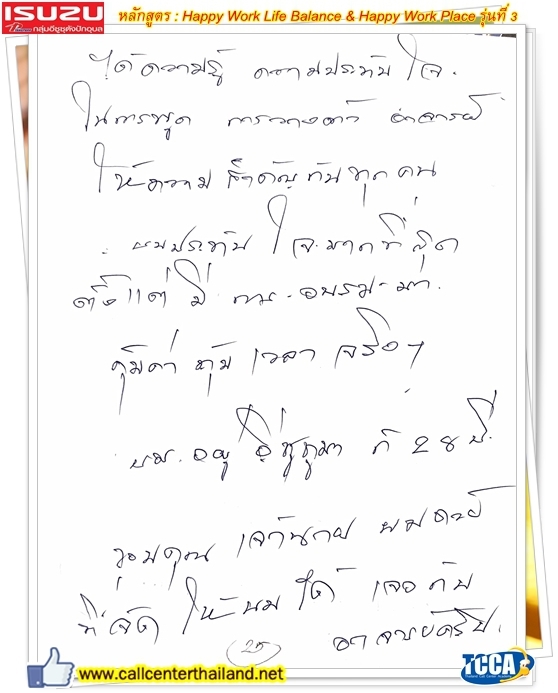 ISUZU
กลุ่มอีซูซุตังปักดุบล
หลักสูตร : Happy Work Life Balance & Happy Work Place รุ่นที่ 3
ได้ความรู้ ความประทับใจ.
ในการพูด การวางตัว อาจารย์
ให้ความสำคัญกับทุกคน
ผมประทับใจมากที่สุด
ตั้งแต่มีการอบรมมา.
คุ้มค่ากับเวลาจริงๆ
ผม.อยู่อีซูซุมา ก็ 28 ปี.
ขอบคุณ เจ้านาย ผมด้วย
ที่จัดให้ผมได้เจอกับ
25
www.callcenterthailand.net
TCCA